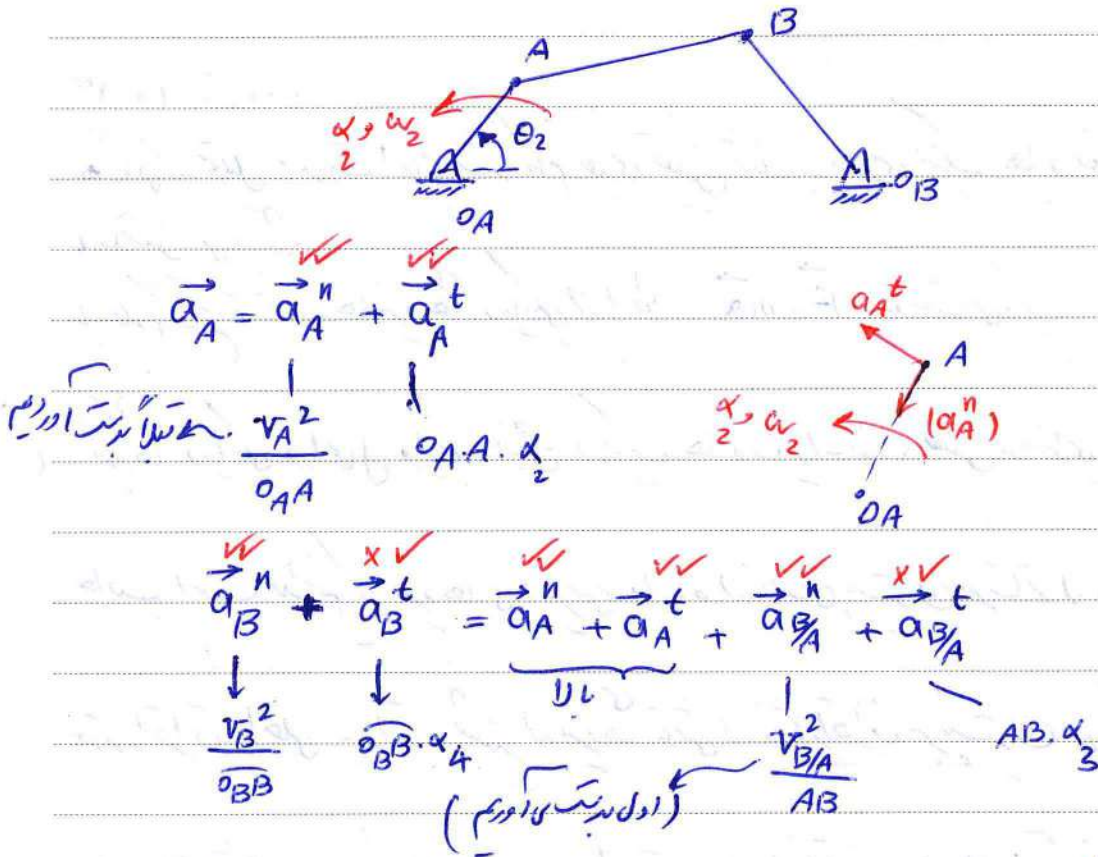 B
A
α₂, ω₂ θ₂
O_A O_B
✓✓ ✓✓
a⃗_A = a⃗_A^n + a⃗_A^t
a_A^t
A
قبلاً بدست آوردیم V_A² / O_A A O_A.A.α₂
α₂, ω₂ (a_A^n)
O_A
✓✓ x✓ ✓✓ ✓✓ ✓✓ x✓
a⃗_B^n + a⃗_B^t = a⃗_A^n + a⃗_A^t + a⃗_B/A^n + a⃗_B/A^t
بالا
V_B² / O_B B O_B B.α₄ V_B/A² / AB AB.α₃
(اول بدست می‌آوریم)